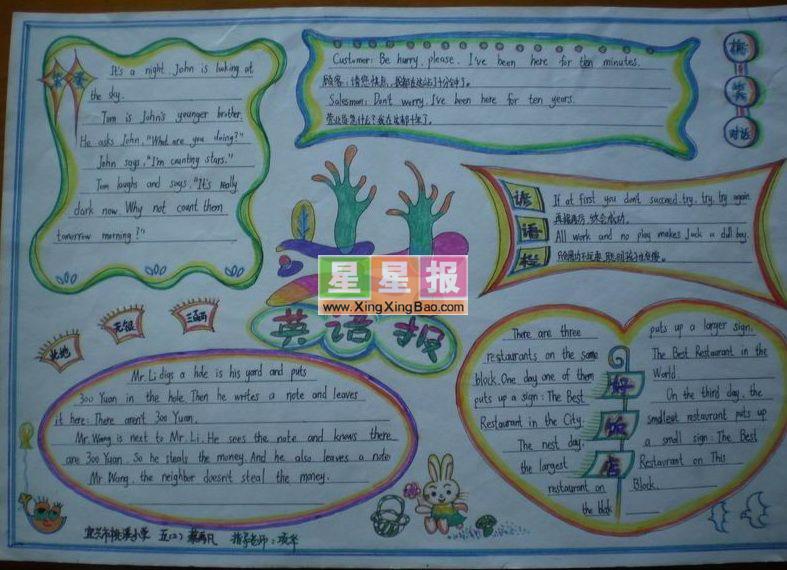 It's a night. John is looking at
the sky.
Tom is John's younger brother.
He asks John, "What are you doing?"
John says, "I'm counting stars."
Tom laughs and says, "It's really
dark now. Why not count them
tomorrow morning?"
Customer: Be hurry, please. I've been here for ten minutes.
顾客:请您快点,我都在这站了十分钟了。
Salesman: Don't worry. I've been here for ten years.
营业员:急什么?我在这都十年了。
搞
笑
对话
谚
语
栏
If at first you don't succeed, try, try, try again.
再接再厉,终会成功。
All work and no play makes Jack a dull boy.
星星报
www.XingXingBao.com
英语报
此地
无银
三百两
Mr. Li digs a hole is his yard and puts
300 Yuan in the hole. Then he writes a note and leaves
it here: There aren't 300 Yuan.
Mr Wang is next to Mr. Li. He sees the note and knows there
are 300 Yuan. So he steals the money. And he also leaves a note
Mr Wang, the neighbor doesn't steal the money.
好
饭
店
There are three
restaurants on the same
block. One day one of them
puts up a sign: The Best
Restaurant in the City.
The nest day,
the largest
restaurant on
the blck
puts up a larger sign.
The Best Restaurant in the
World
On the third day, the
smallest restaurant puts up
a small sign: The Best
Restaurant on This
Block.
小学 五(2) 指导老师: